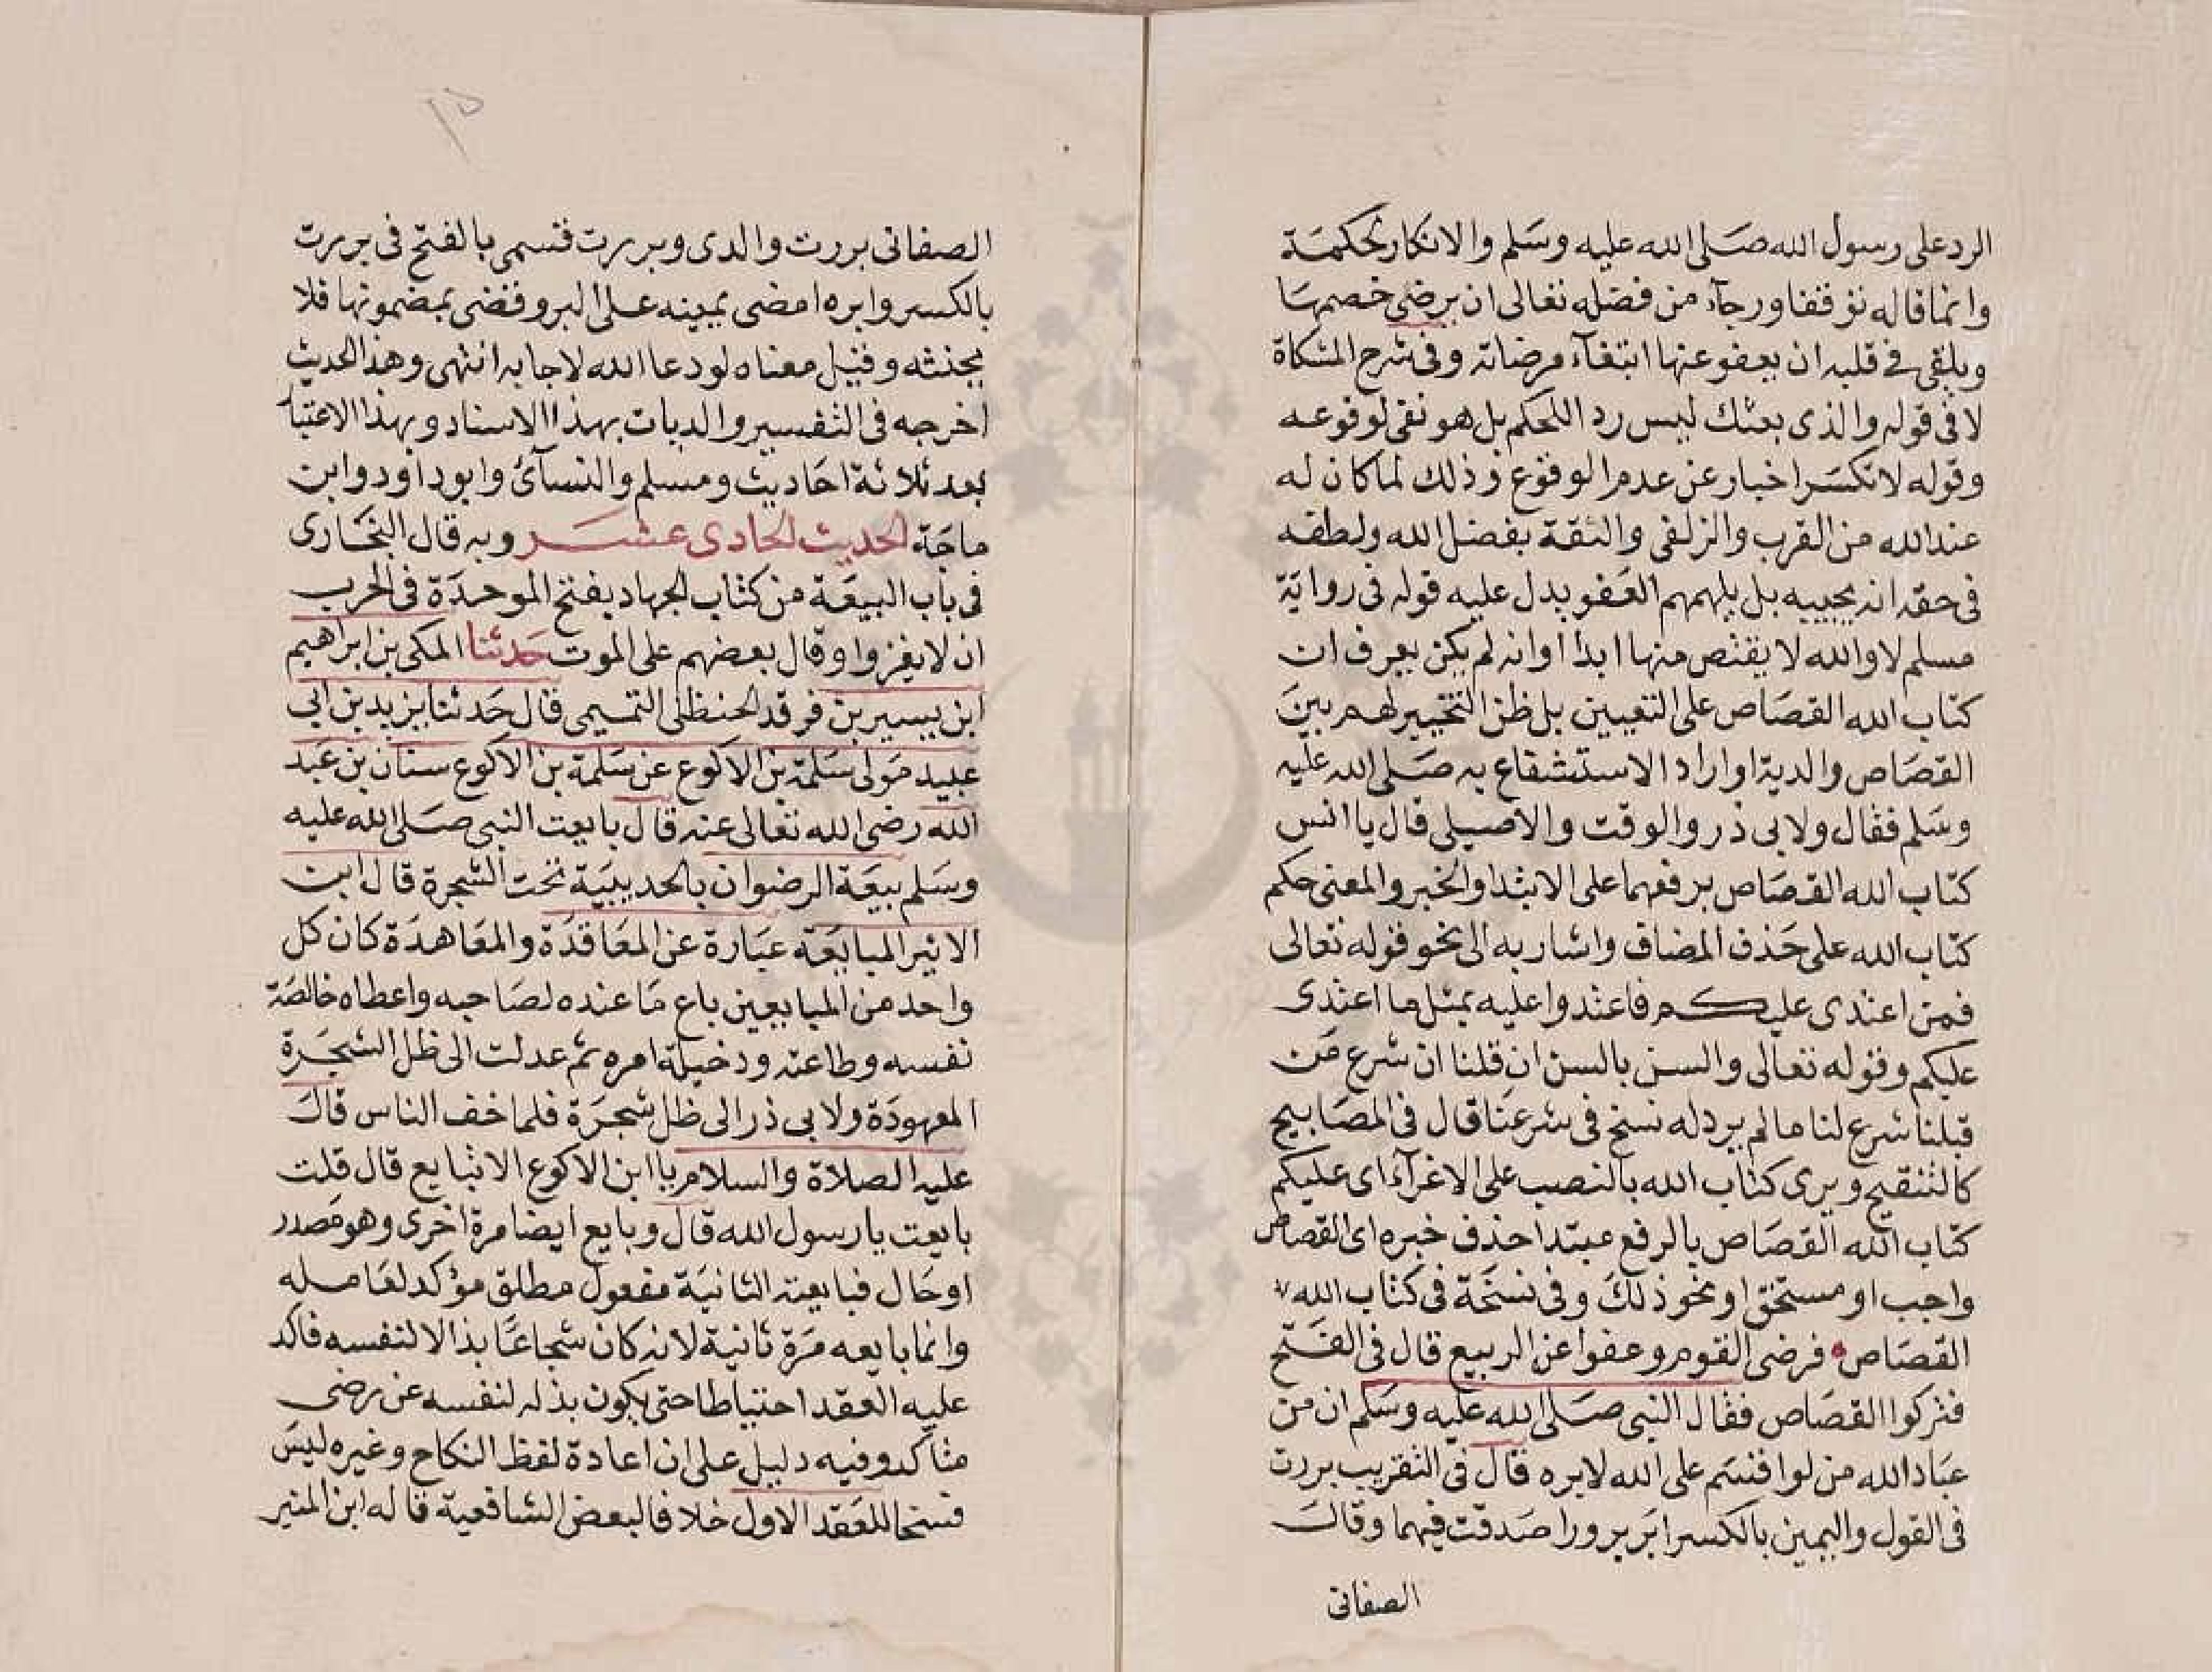 الرد على رسول الله صلى الله عليه وسلم والانكار لحكمه
وانما قاله توقفا ورجآء من فضله تعالى ان يرضى خصمها
ويلقى في قلبه ان يعفو عنها ابتغآء مرضاته وفي شرح المشكاة
لا في قوله والذى بعثك ليس رد اللحكم بل هو نفى لوقوعه
وقوله لا تكسر اخبار عن عدم الوقوع وذلك لما كان له
عند الله من القرب والزلفى والثقة بفضل الله ولطفه
فى حقه انه يجيبه بل يلهمهم العفو يدل عليه قوله فى رواية
مسلم لا والله لا يقتص منها ابدا اوانه لم يكن يعرف ان
كتاب الله القصاص على التعيين بل ظن التخيير لهم بين
القصاص والدية او اراد الاستشفاع به صلى الله عليه
وسلم فقال ولابى ذر والوقت والاصيلى قال يا انس
كتاب الله القصاص برفعهما على الابتدا والخبر والمعنى حكم
كتاب الله على حذف المضاف واشار به الى نحو قوله تعالى
فمن اعتدى عليكم فاعتدوا عليه بمثل ما اعتدى
عليكم وقوله تعالى والسن بالسن ان قلنا ان شرع من
قبلنا شرع لنا ما لم يرد له نسخ فى شرعنا قال فى المصابيح
كالتنقيح ويرى كتاب الله بالنصب على الاغرآء اى عليكم
كتاب الله القصاص بالرفع مبتدا حذف خبره اى القصاص
واجب او مستحق او نحو ذلك وفى نسخة فى كتاب الله
القصاص فرضى القوم وعفوا عن الربيع قال فى الفتح
فتركوا القصاص فقال النبى صلى الله عليه وسلم ان من
عباد الله من لو اقسم على الله لابره قال فى التقريب بررت
فى القول واليمين بالكسر ابر برورا صدقت فيهما وقال
الصفانى
الصفانى بررت والدى وبررت قسمى بالفتح فى بررت
بالكسر وابره امضى يمينه على البر وقضى بمضمونها فلا
يحنثه وقيل معناه لو دعا الله لاجابه انتهى وهذا الحديث
اخرجه فى التفسير والديات بهذا الاسناد وبهذا الاعتبا
بعد ثلاثة احاديث ومسلم والنسآئ وابو داود وابن
ماجة الحديث الحادى عشر وبه قال البخارى
فى باب البيعة من كتاب الجهاد بفتح الموحدة فى الحرب
ان لا يفروا وقال بعضهم على الموت حدثنا المكى بن ابراهيم
ابن يسير بن فرقد الحنظلى التميمى قال حدثنا يزيد بن ابى
عبيد مولى سلمة بن الاكوع عن سلمة بن الاكوع سنان بن عبد
الله رضى الله تعالى عنه قال بايعت النبى صلى الله عليه
وسلم بيعة الرضوان بالحديبية تحت الشجرة قال ابن
الاثير المبايعة عبارة عن المعاقدة والمعاهدة كان كل
واحد من المبايعين باع ما عنده لصاحبه واعطاه خالصة
نفسه وطاعته ودخيلة امره ثم عدلت الى ظل الشجرة
المعهودة ولابى ذر الى ظل شجرة فلما خف الناس قال
عليه الصلاة والسلام يا ابن الاكوع الا تبايع قال قلت
بايعت يا رسول الله قال وبايع ايضا مرة اخرى وهو مصدر
او حال فبايعته الثانية مفعول مطلق مؤكد لعامله
وانما بايعه مرة ثانية لانه كان شجاعا بذالا لنفسه فاكد
عليه العقد احتياطا حتى يكون بذله لنفسه عن رضى
متأكد وفيه دليل على ان اعادة لفظ النكاح وغيره ليس
فسخا للعقد الاول خلافا لبعض الشافعية قاله ابن المنير